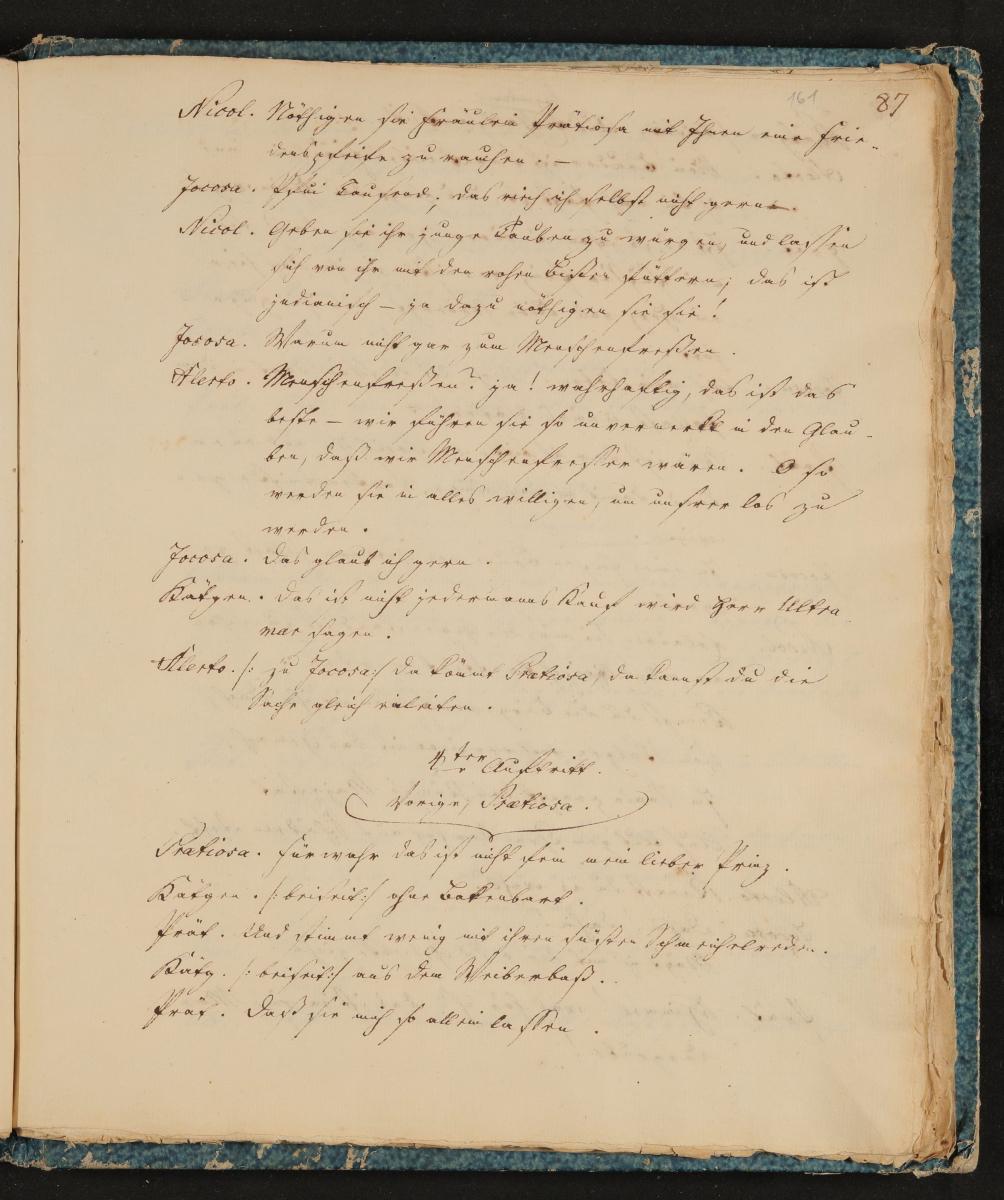 161 87
Nicol. Nöthigen sie Fräulein Prätiosa mit Ihnen eine Frie-
denspfeife zu rauchen. —
Jocosa. Pfui Tausend, das riech ich selbst nicht gern.
Nicol. Geben sie ihr junge Tauben zu würgen, und lassen
sich von ihr mit den rohen Bissen füttern; das ist
indianisch — ja dazu nöthigen sie sie!
Jocosa. Warum nicht gar zum Menschenfressen.
Alerto. Menschenfressen? ja! wahrhaftig, das ist das
beste — wir führen sie so unvermerkt in den Glau-
ben, daß wir Menschenfresser wären. O so
werden sie in alles willigen, um unsrer los zu
werden.
Jocosa. Das glaub ich gern.
Kätgen. Das ist nicht jedermanns Kauf wird Herr Ultra
mar sagen.
Alerto. /: zu Jocosa :/ da kömmt Prætiosa, da kannst du die
Sache gleich einleiten.
4ter Auftritt.
Vorige, Prætiosa.
Prætiosa. Fürwahr das ist nicht fein mein lieber Prinz.
Kätgen. /: beiseit :/ ohne Bakenbart.
Prät. Und stimmt wenig mit ihren süßen Schmeichelreden.
Kätg. /: beiseit :/ aus dem Weiberbaß.
Prät. Daß sie mich so allein lassen.